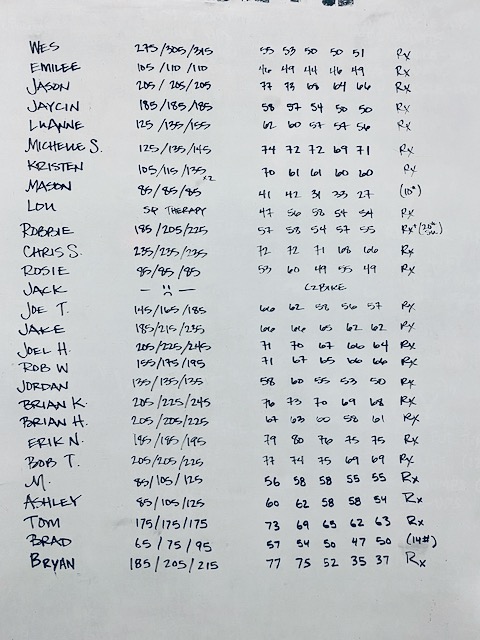 WES 275/305/315 55 53 50 50 51 Rx
EMILEE 105/110/110 46 49 44 46 49 Rx
JASON 205/205/205 77 73 68 64 66 Rx
JAYCIN 185/185/185 58 57 54 50 50 Rx
LUANNE 125/135/155 62 60 57 57 56 Rx
MICHELLE S. 125/135/145 74 72 72 69 71 Rx
KRISTEN 105/115/135 x2 70 61 61 60 60 Rx
MASON 85/85/85 41 42 31 33 27 (10#)
LOU SP THERAPY 47 56 58 54 54 Rx
ROBBIE 185/205/225 57 58 54 57 55 Rx+
CHRIS S. 235/235/235 72 72 71 68 66 Rx
ROSIE 85/85/85 53 60 49 55 49 Rx
JACK — — BIKE
JOE T. 145/165/185 66 62 58 56 57 Rx
JAKE 185/215/235 66 66 65 62 62 Rx
JOEL H. 205/225/245 71 70 67 66 64 Rx
ROB W 155/175/195 71 67 65 66 66 Rx
JORDAN 135/135/135 58 60 55 53 50 Rx
BRIAN K. 205/225/245 76 73 70 69 68 Rx
BRIAN H. 205/205/225 67 63 60 58 61 Rx
ERIK N. 185/185/195 79 80 76 75 75 Rx
BOB T. 205/205/225 77 74 75 69 69 Rx
M. 85/105/125 56 58 58 55 55 Rx
ASHLEY 85/105/125 60 62 58 58 54 Rx
TOM 175/175/175 73 69 65 62 63 Rx
BRAD 65/75/95 57 54 50 47 50 (14#)
BRYAN 185/205/215 77 75 52 35 37 Rx